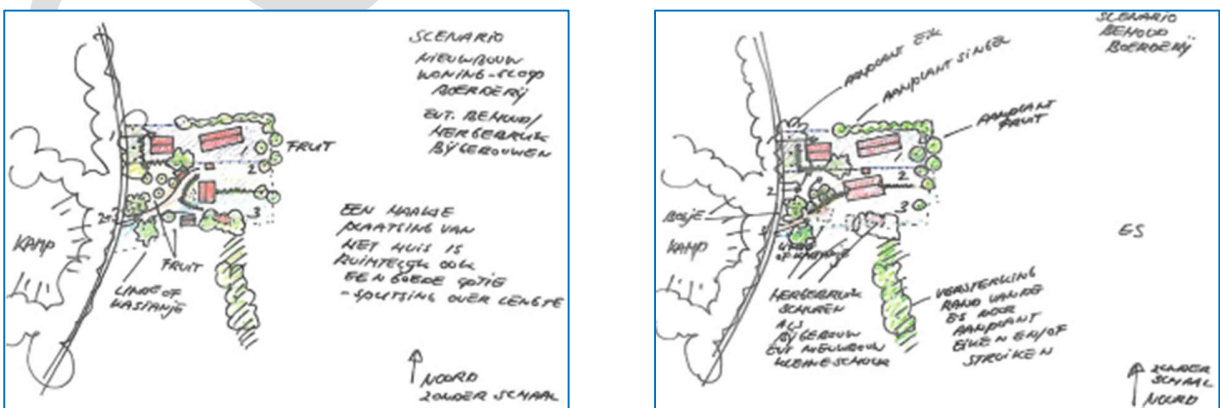 SCENARIO
NIEUWBOUW
WONING-SLOOP
BOERDERIJ
EVT. BEHOUD/
HERGEBRUIK
BIJGEBOUWEN
FRUIT
1
2
3
EEN HAAKSE
PLAATSING VAN
HET HUIS IS
RUIMTELIJK OOK
EEN GOEDE OPTIE
-SPLITSING OVER LENGTE
KAMP
FRUIT
LINDE OF
KASTANJE
NOORD
ZONDER SCHAAL
SCENARIO
BEHOUD
BOERDERIJ
AANPLANT EIK
AANPLANT SINGEL
AANPLANT
FRUIT
1
2
3
BOSJE
KAMP
ES
HERGEBRUIK
SCHUREN
ALS
BIJGEBOUW
EVT NIEUWBOUW
KLEINE SCHUUR
VERSTERKING
RAND VAN DE
ES DOOR
AANPLANT
EIKEN EN/OF
STRUIKEN
ZONDER
SCHAAL
NOORD